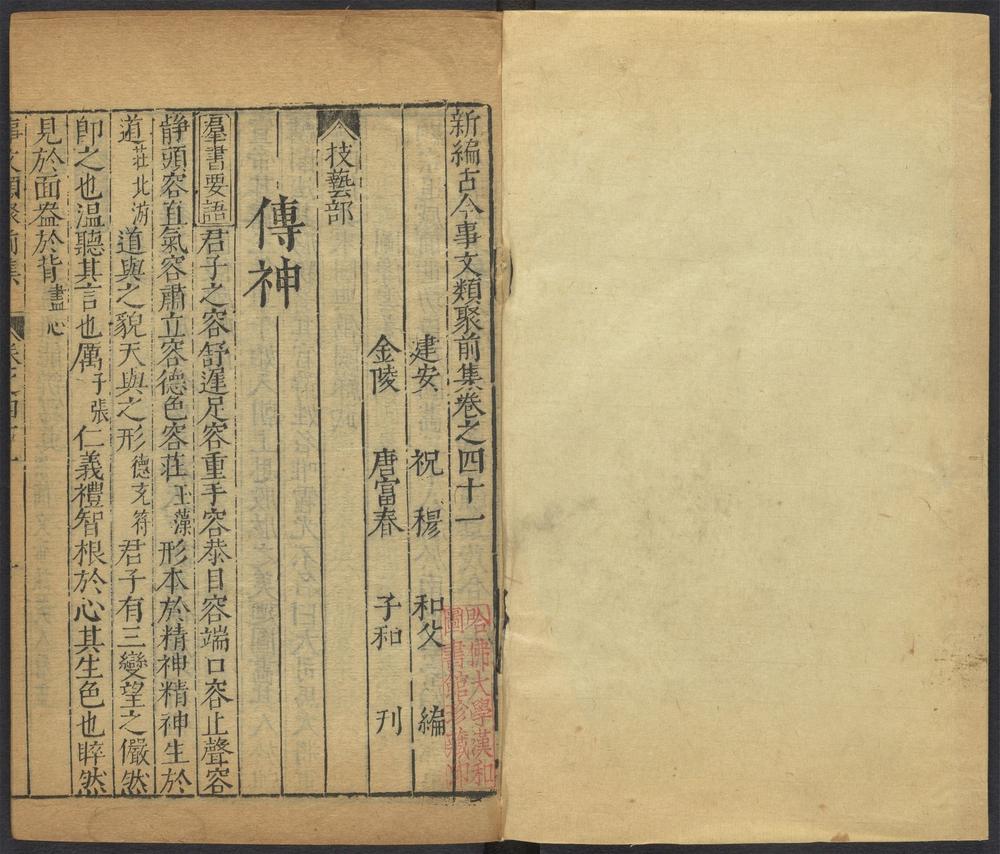 新編古今事文類聚前集卷之四十一
建安 祝 穆 和父 編
金陵 唐富春 子和 刊
技藝部
傳神
羣書要語 君子之容舒遲足容重手容恭目容端口容止聲容
静頭容直氣容肅立容德色容莊玉藻形本於精神精神生於
道莊北游道與之貌天與之形德充符君子有三變望之儼然
卽之也温聽其言也厲子張仁義禮智根於心其生色也睟然
見於面盎於背盡心
哈佛大學漢和
圖書館珍藏印